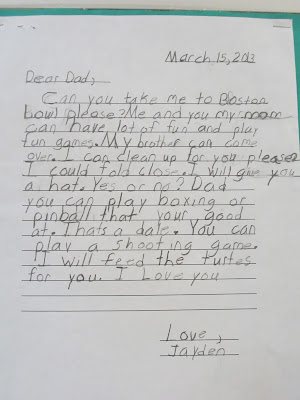 March, 15, 2013
Dear Dad,
Can you take me to Boston
bowl please? Me and you my mom
can have lot of fun and play
fun games. My brother can come
over. I can clean up for you please
I could fold close. I will give you
a hat. Yes or no? Dad
you can play boxing or
pinball that your good
at. Thats a date. You can
play a shooting game.
I will feed the turtes
for you. I Love you
Love,
Jayden